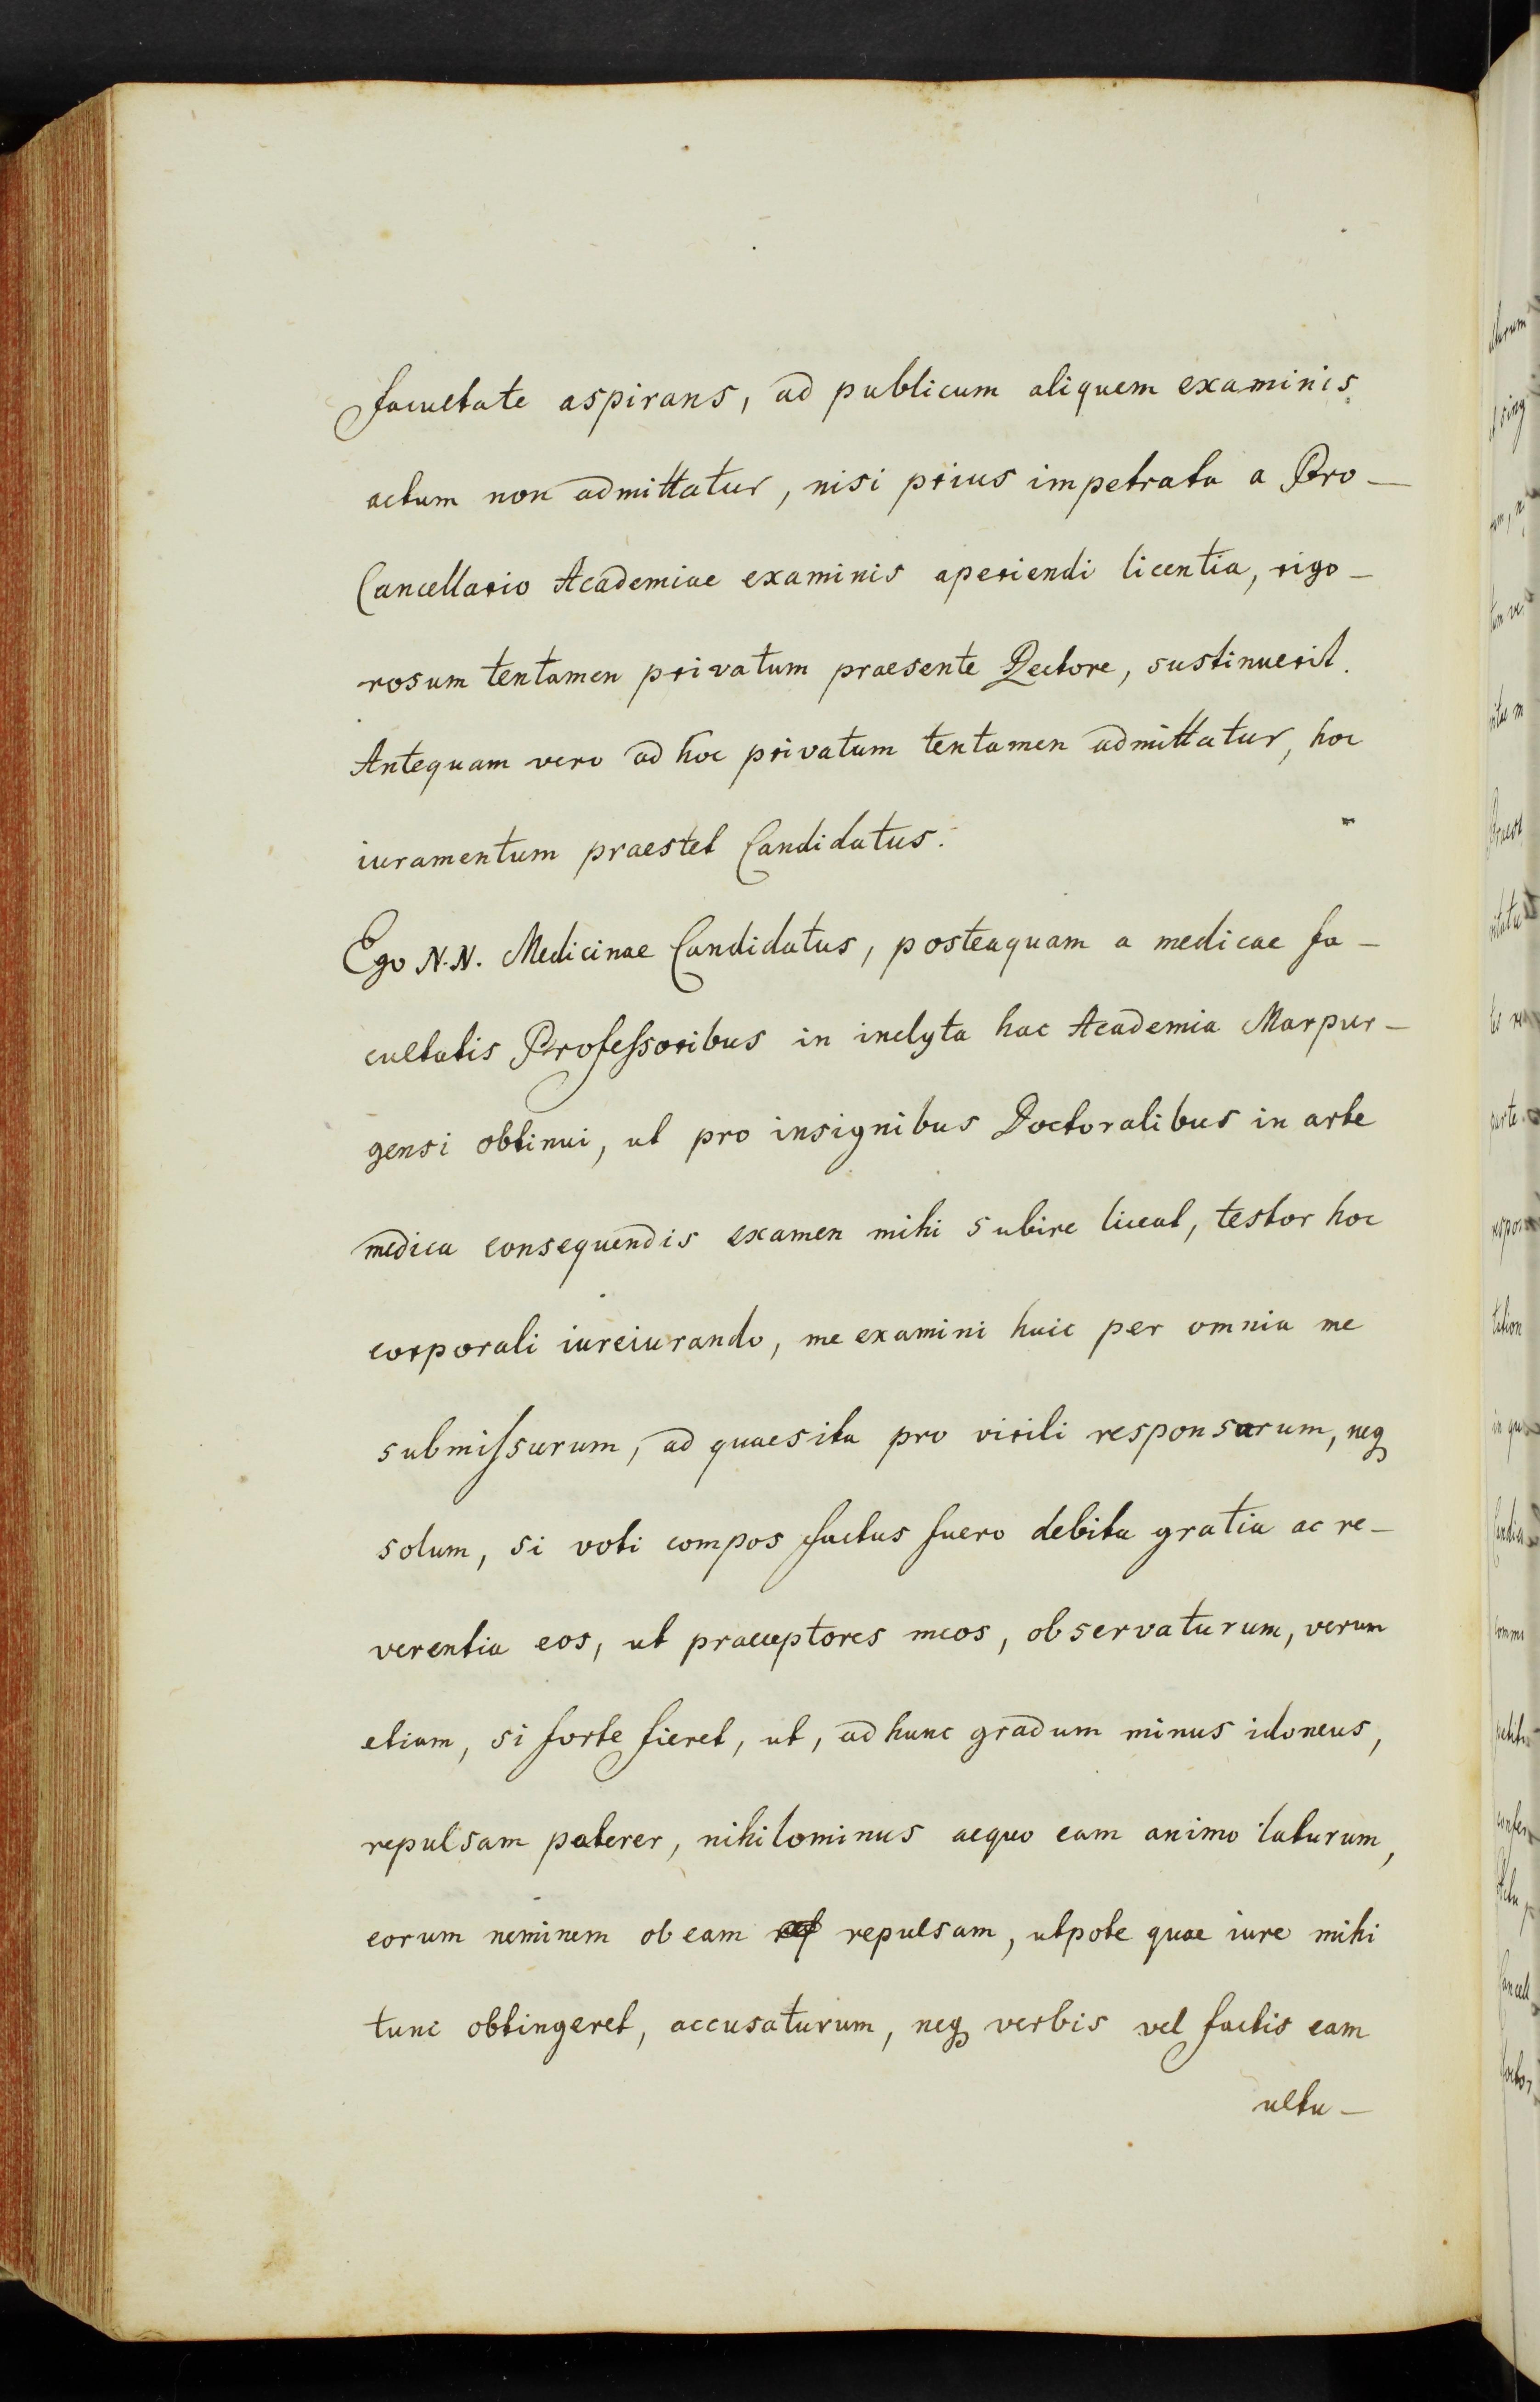 facultate aspirans, ad publicum aliquem examinis
actum non admittatur, nisi prius impetrata a Pro-
Cancellario Academiae examinis aperiendi licentia, rigo-
rosum tentamen privatum praesente Rectore, sustinuerit.
Antequam vero ad hoc privatum tentamen admittatur, hoc
iuramentum praestet Candidatus.
Ego N.N. Medicinae Candidatus, posteaquam a medicae fa-
cultatis Professoribus in inclyta hac Academia Marpur-
gensi obtinui, ut pro insignibus Doctoralibus in arte
medica consequendis examen mihi subire liceat, testor hoc
corporali iureiurando, me examini huic per omnia me
submissurum, ad quaesita pro virili responsurum, neq
solum, si voti compos factus fuero debita gratia ac re-
verentia eos, ut praeceptores meos, observaturum, verum
etiam, si forte fieret, ut, ad hunc gradum minus idoneus,
repulsam paterer, nihilominus aequo eam animo laturum,
eorum neminem ob eam repulsam, utpote quae iure mihi
tunc obtingeret, accusaturum, neq verbis vel factis eam
ultu-